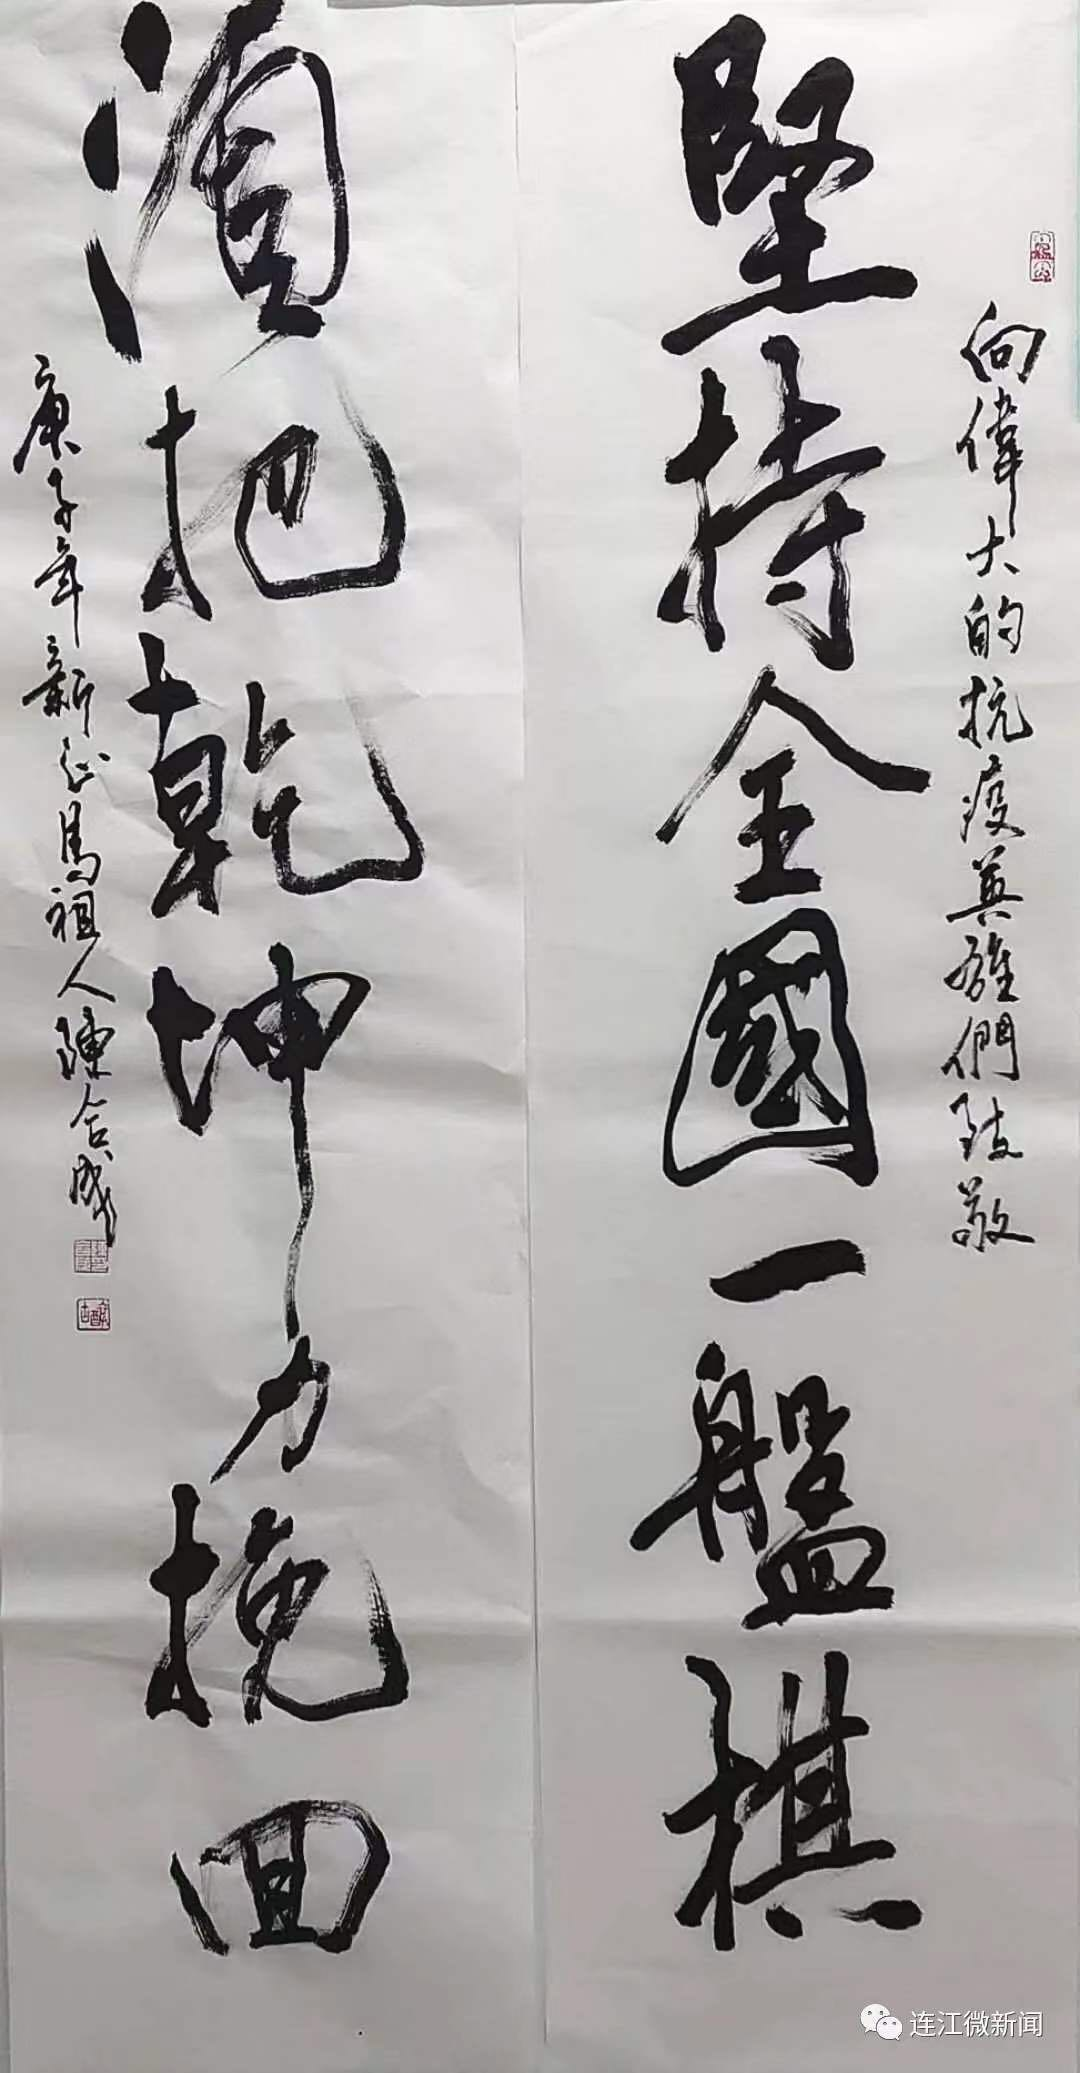 向偉大的抗疫英雄們致敬
堅持全國一盤棋
湏把乾坤力挽回
庚子年新正馬祖人陳合成
连江微新闻